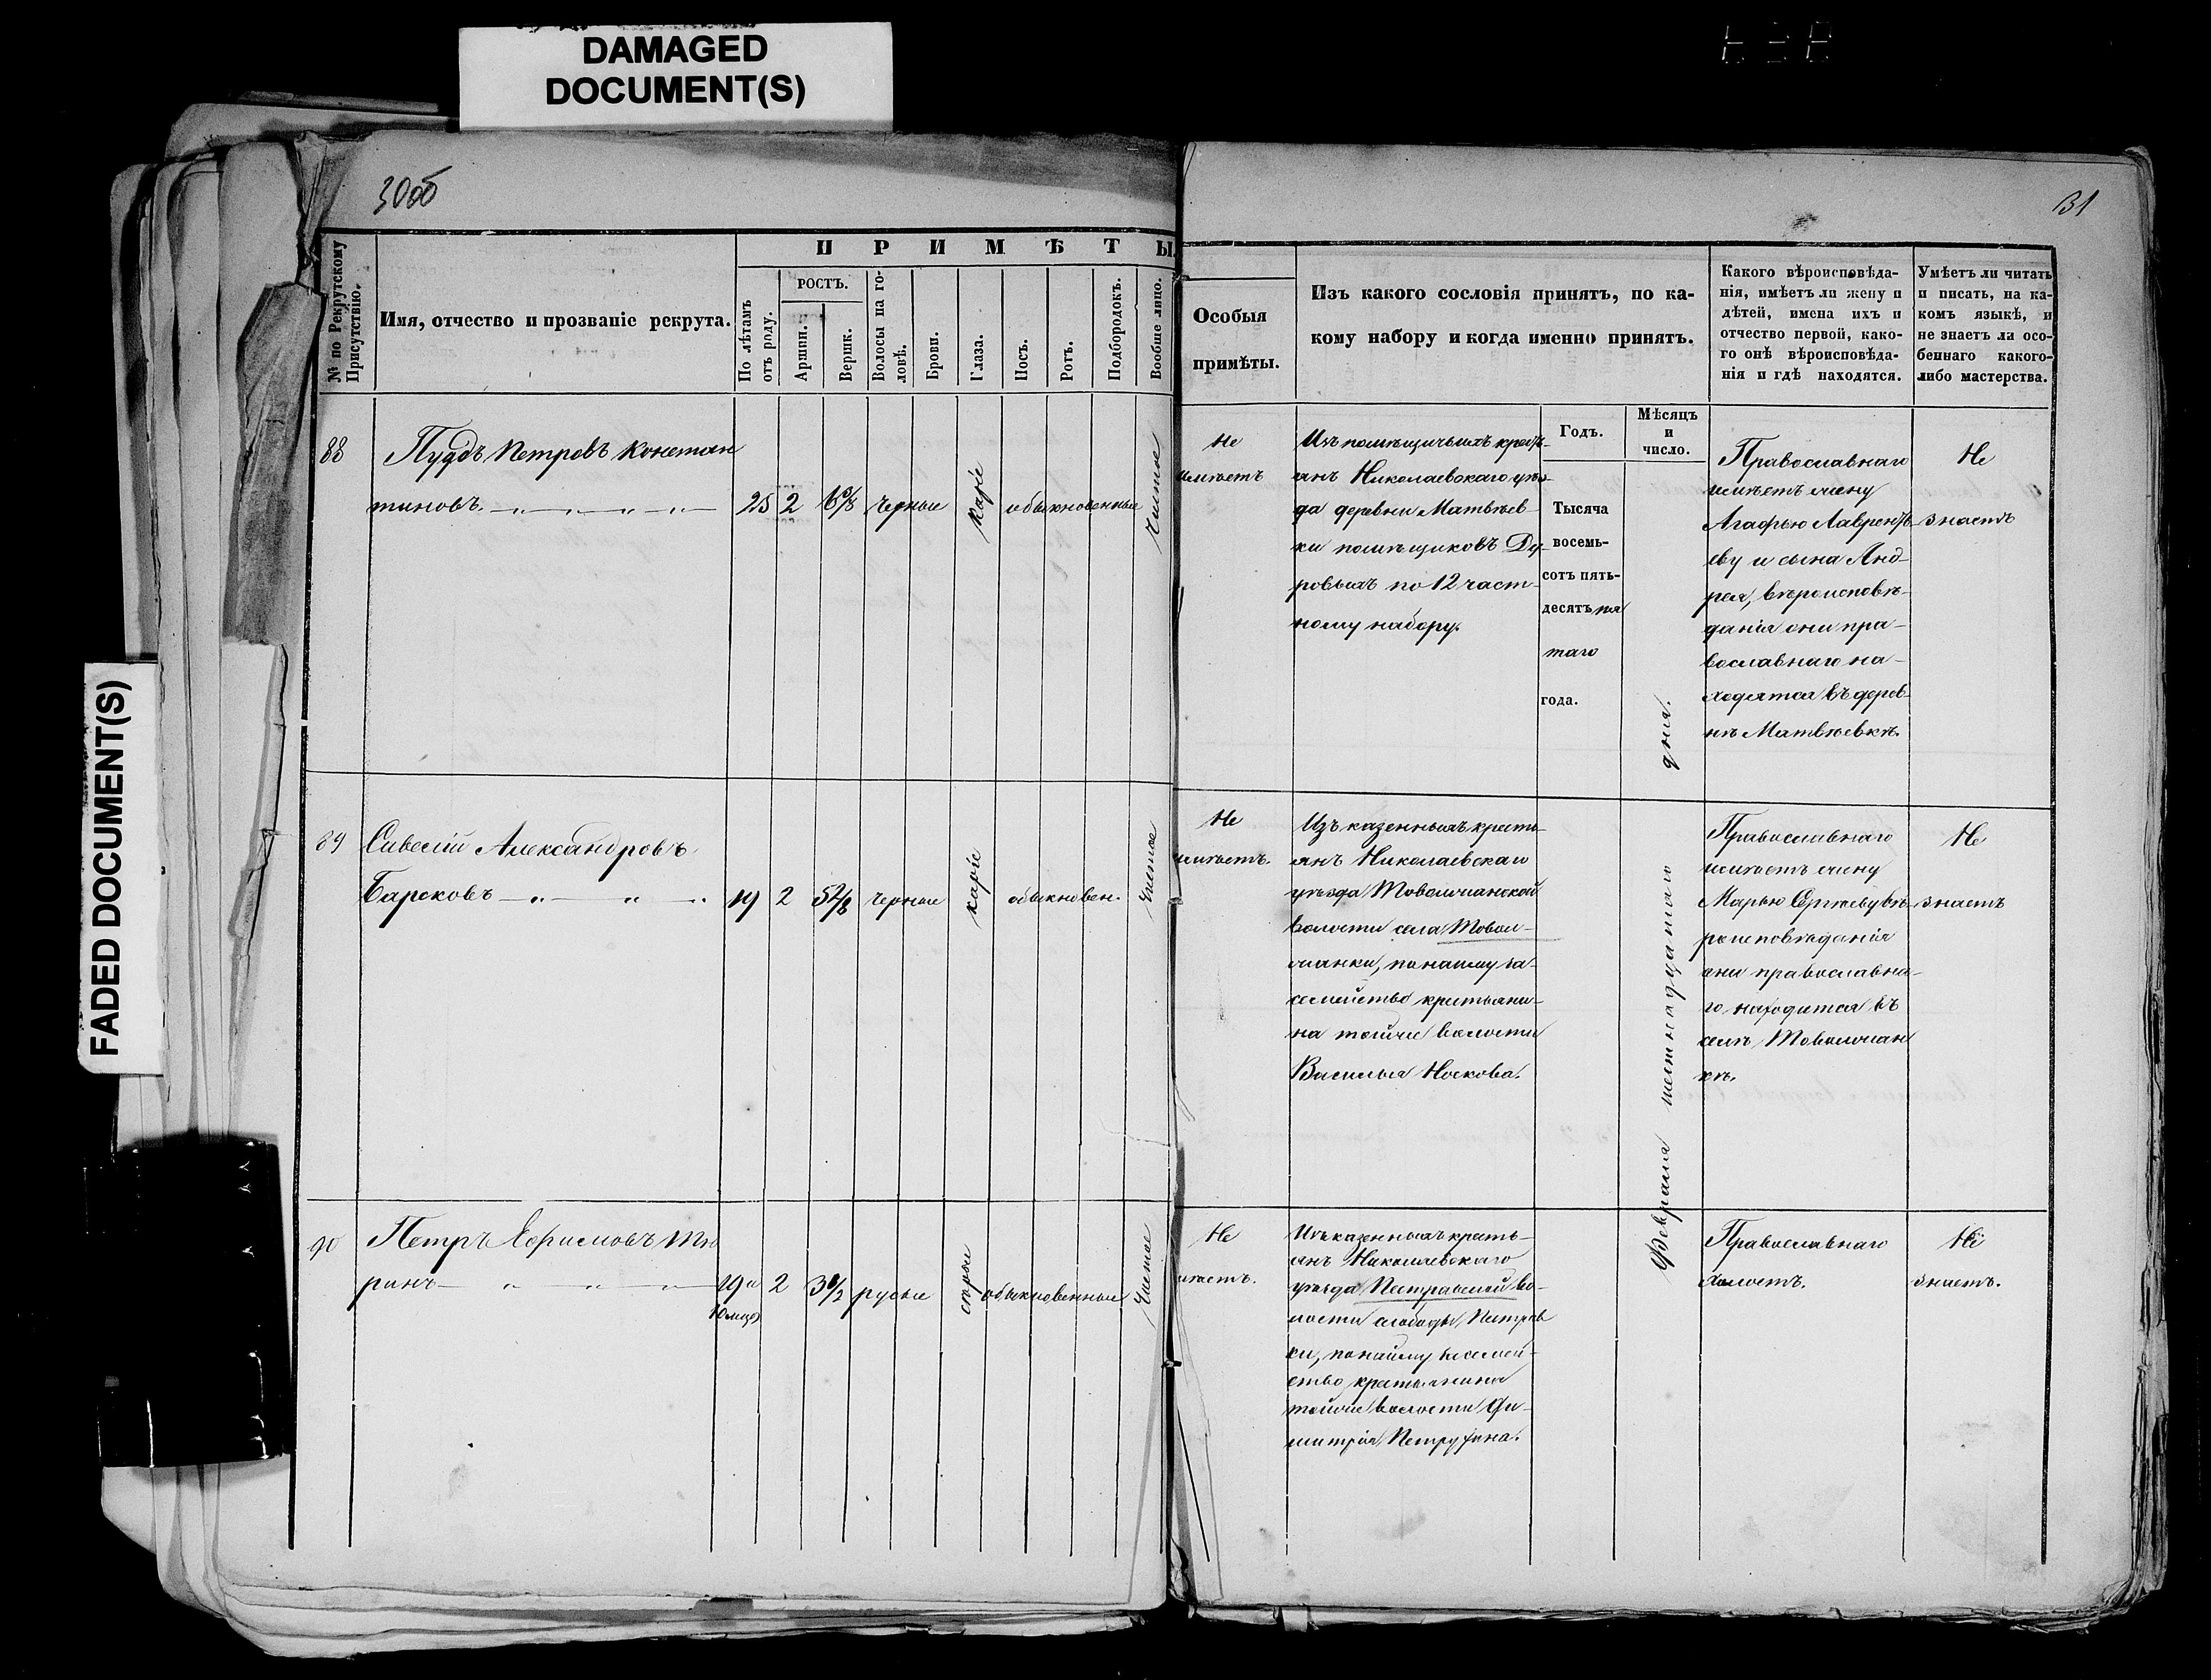 DAMAGED
DOCUMENT(S)
FADED DOCUMENT(S)
30об
31
ПРИМѢТЫ.
№ по Рекрутскому
Присутствію.
Имя, отчество и прозваніе рекрута.
По лѣтамъ
отъ роду.
РОСТЪ.
Аршин.
Вершк.
Волосы на го-
ловѣ.
Брови.
Глаза.
Носъ.
Ротъ.
Подбородокъ.
Вообще лицо.
Особыя
примѣты.
Изъ какого сословія принятъ, по ка-
кому набору и когда именно принятъ.
Какого вѣроисповѣда-
нія, имѣетъ ли жену и
дѣтей, имена ихъ и
отчество первой, како-
го онѣ вѣроисповѣда-
нія и гдѣ находятся.
Умѣетъ ли читать
и писать, на ка-
комъ языкѣ, и
не знаетъ ли осо-
беннаго какого-
либо мастерства.
Годъ.
Мѣсяцъ
и
число.
88
Пудъ Петровъ Констан
тиновъ.
25 2 6 черные карiе обыкновенные чистое
Не
имѣетъ
Изъ помѣщичьихъ кресть-
янъ Николаевскаго уѣз-
да деревни Матвѣев-
ки помѣщиковъ Ду-
ровыхъ по 12 част-
ному набору.
Тысяча
восемь-
сотъ пять-
десятъ пя
таго
года.
Февраля шестнадцатаго дня.
Православнаго
имѣетъ жену
Агафью Лаврентье-
еву и сына Анд-
рея, вѣроисповѣ-
данія они пра-
вославнаго на-
ходятся въ дерев-
нѣ Матвѣевкѣ.
Не
знаетъ
89
Савелій Александровъ
Барсковъ
19 2 5 2/8 черные карiе обыкновен. чистое
Не
имѣетъ.
Изъ казенныхъ кресть-
янъ Николаевскаго
уѣзда Товолжанской
волости села Товол-
жанки, по найму за
семейство крестьяни-
на тойже волости
Василья Носкова.
Православнаго
имѣетъ жену
Марью Сергѣеву вѣ-
роисповѣданія
они православна-
го, находится въ
селѣ Товолжан
кѣ.
Не
знаетъ
90
Петръ Ефимовъ Тю
ринъ
19 и
10 мцов
2 3 1/2 русые сѣрые обыкновенные чистое
Не
имѣетъ.
Изъ казенныхъ кресть-
янъ Николаевскаго
уѣзда Пестравской во-
лости слободы Пестрав
ки, по найму за семей-
ство крестьянина
тойже волости Ди-
митрія Петрухина.
Православнаго
холостъ.
Не
знаетъ.